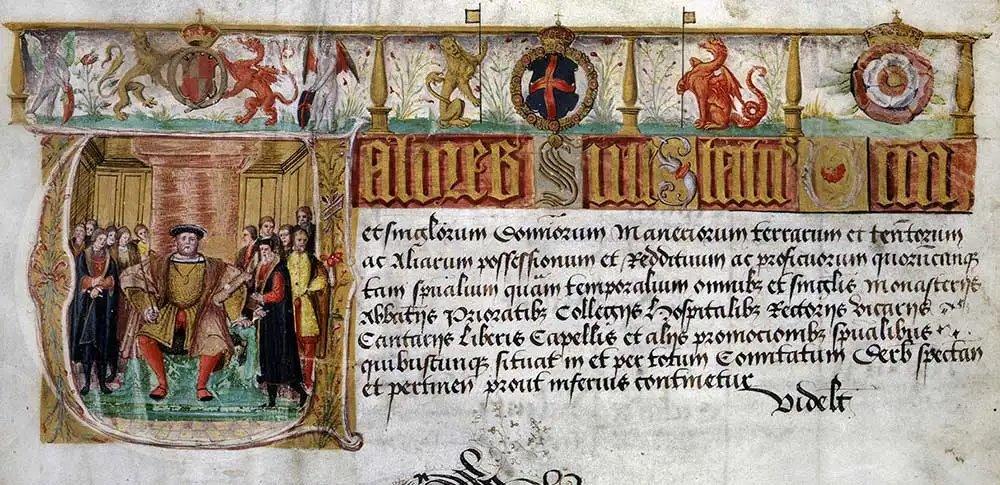 et singlorum Domiorum Maneriorum terrarum et tentorum
ac Aliarum possessionum et Reddituum ac proficuorum quorumcunq
tam spualium quam temporalium omnibz et singlis Monasterijs
Abbatijs Prioratibz Collegijs Hospitalibz Rectorijs Vicarijs
Cantarijs Liberis Capellis et alijs promocionibz spualibus
quibuscunque situat in et per totum Comitatum Derb spectan
et pertinen prout inferius continetur
Videlt